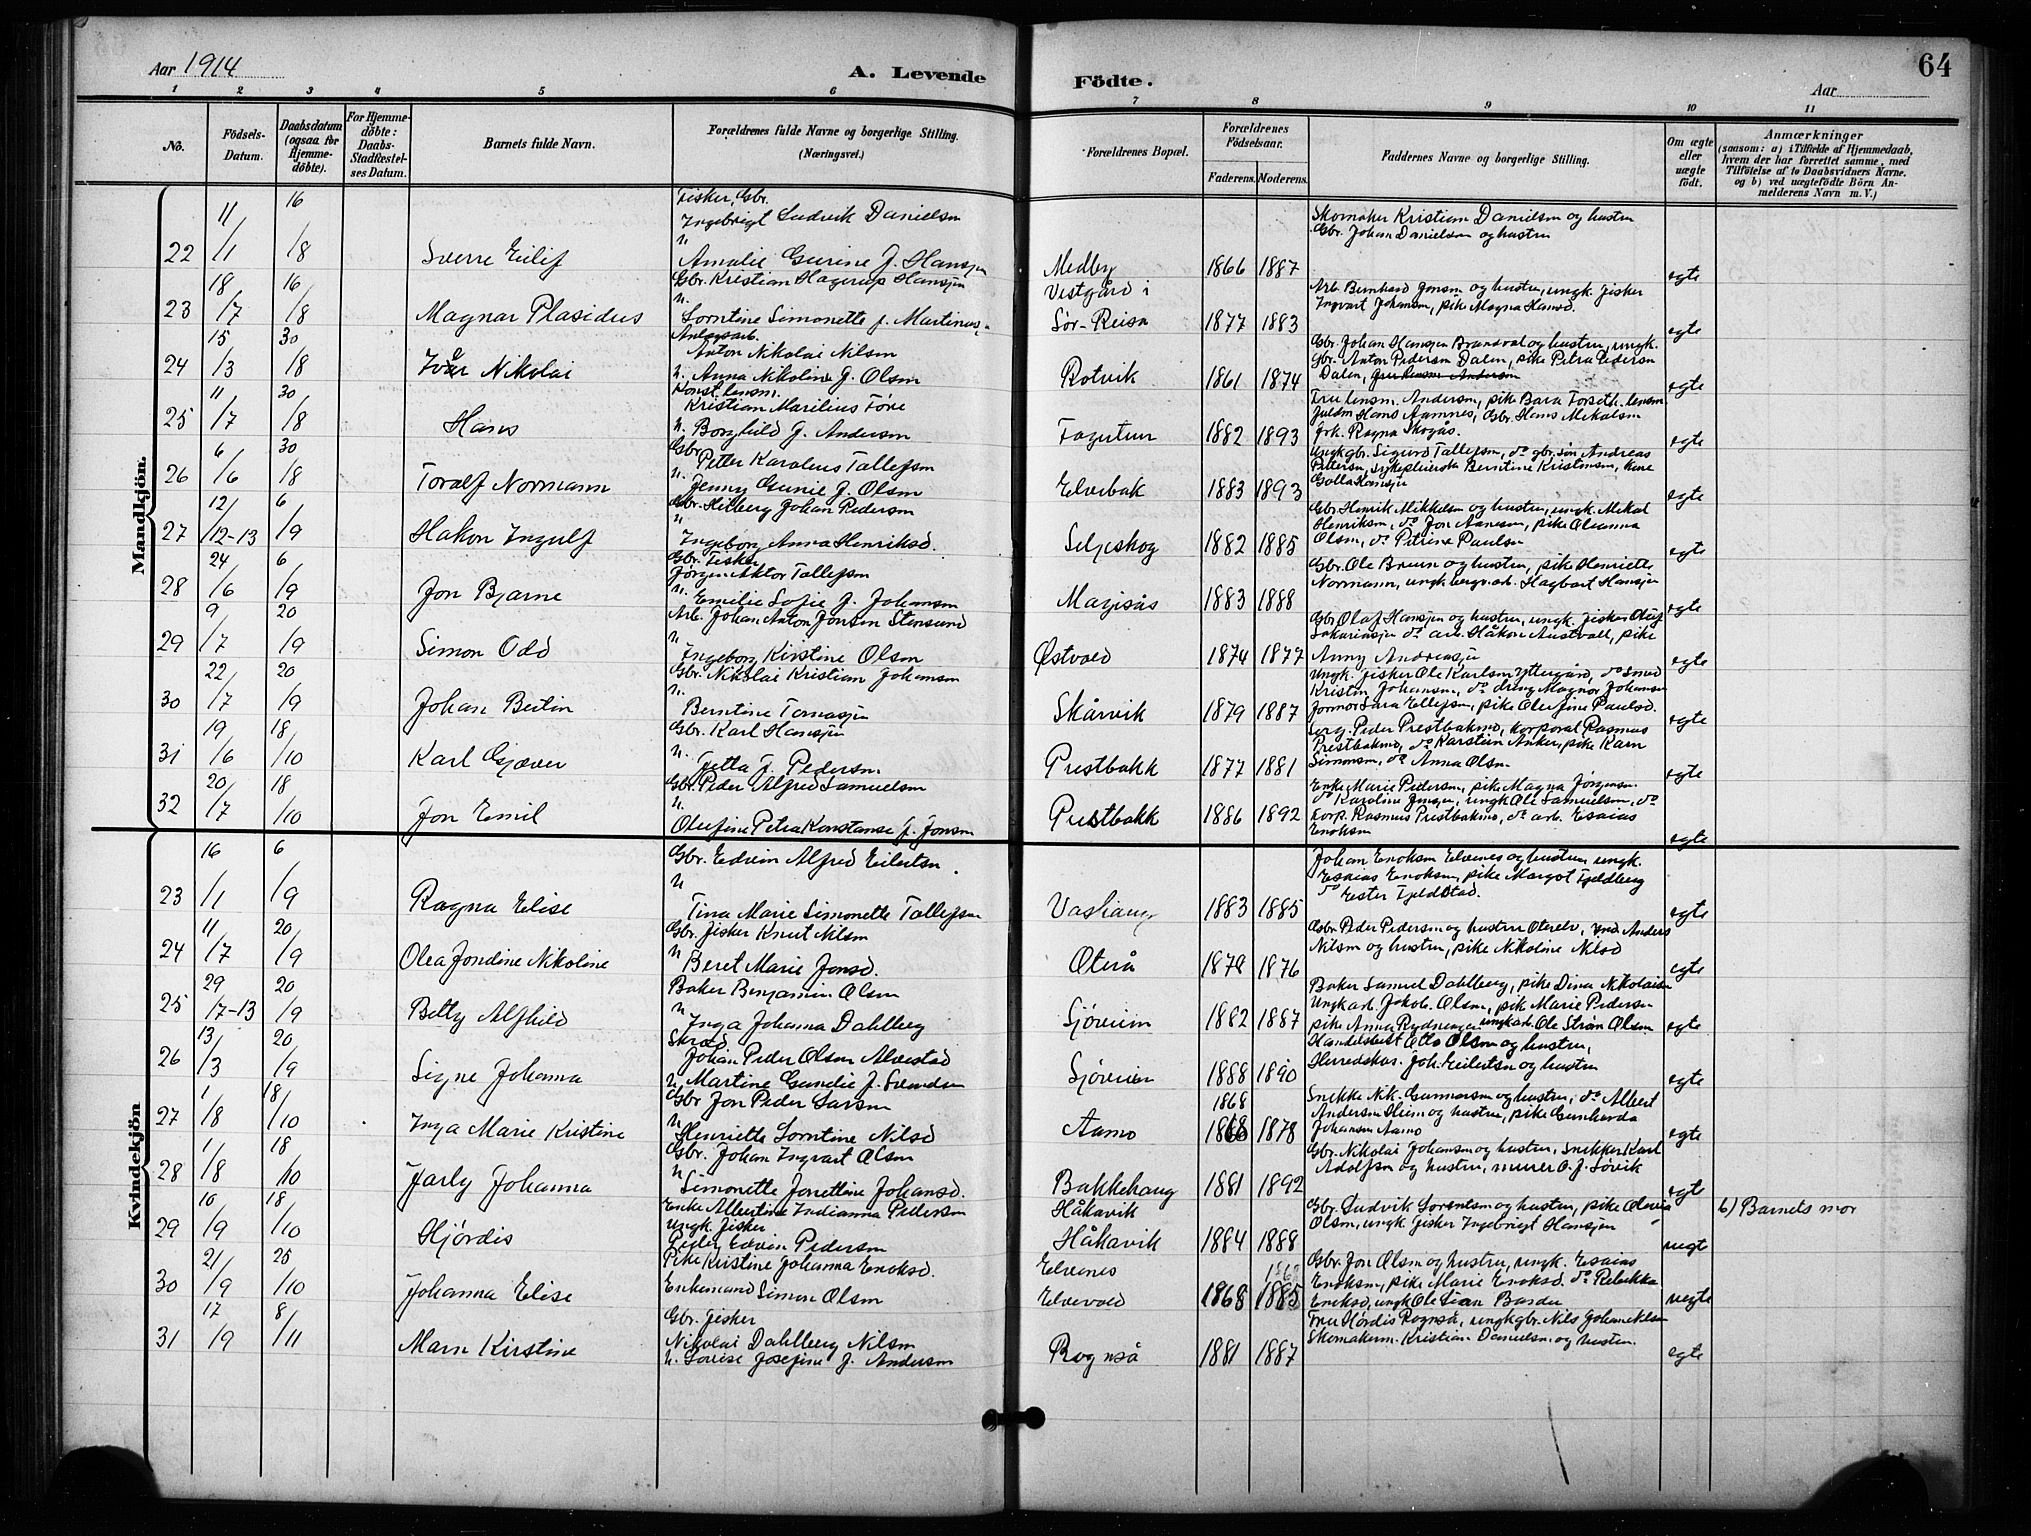 Aar 1914
A. Levende
Födte.
64
Aar
1 2 3 4 5 6 7 8 9 10 11
No.
Födsels-Datum.
Daabsdatum (ogsaa for Hjemmedöbte).
For Hjemmedöbte: Daabs-Stadfæstelses Datum.
Barnets fulde Navn.
Forældrenes fulde Navne og borgerlige Stilling.
(Næringsvei.)
Forældrenes Bopæl.
Forældrenes Födselsaar.
Faderens. Moderens.
Faddernes Navne og borgerlige Stilling.
Om ægte eller uægte födt.
Anmærkninger
(saasom: a) i Tilfælde af Hjemmedaab, hvem der har forrettet samme, med Tilföielse af to Daabsvidners Navne. og b) ved uægtefödte Börn Anmelderens Navn m. V.)
Mandkjön.
22 11/1 16/8 Sverre Eilif
Fisker, Gbr.
Ingebrigt Ludvik Danielsen
Amalie Gurine J. Hansen
Medby 1866 1887
Skomaker Kristian Danielsen og hustru
Gbr. Johan Danielsen og hustru
egte
23 18/7 16/8 Magnar Plasidus
Gbr. Kristian Hagerup Hansen
Lorntine Simonette f. Martinus.
Vestgård i
Sør-Reisa 1877 1883
Arb. Bernhard Jensen og hustru, ungk. fisker
Ingvart Johansen, pike Magna Hansd.
egte
24 15/3 30/8 Nikolai
Anlegsarb.
Anton Nikolai Nilsen
Anna Nikoline J. Olsen
Rotvik 1861 1874
Gbr. Johan Hansen Brandvol og hustru, ungk.
Gbr. Anton Pedersen Dalen, pike Petra Pedersen
Dalen,
egte
25 11/7 30/8 Hans
Konst. lensm.
Kristian Marilius Føre
Borghild J. Andersen
Fagertun 1882 1893
Fru lensm. Andersen, pike Bara Forseth. lensm.
fuldm Hans Aamnes, Gbr. Hans Mikalsen
frk. Ragna Skogås.
egte
26 6/6 30/8 Toralf Normann
Gbr.
Petter Karolius Tollefsen
Jenny Gunie J. Olsen
Elvebak 1883 1893
Ungk gbr. Sigurd Tollefsen, do gbr. søn Andreas
Pettersen, sykepleierske Berntine Kristensen, kone
egte
27 12/12-13 6/9 Hakon Ingulf
Gbr. Hilberg Johan Pedersen
Ingeborg Anna Henriksd.
Seljeskog 1882 1885
Gbr. Henrik Mikkelsen og hustru, ungk. Mikal
Henriksen, do Jon Aanesen, pike Oleanna
Olsen, do Petrine Paulsen
egte
28 24/6 6/9 Jon Bjarne
Gbr. Fisker
Jørgen Aktor Tollefsen
Emilie Sofie J. Johansen
Moijsås 1883 1888
Gbr. Ole Bruun og hustru, pike Henriette
Normann, ungk bergv. arb. Hagbart Hansen
egte
29 9/7 20/9 Simon Odd
Arb. Johan Anton Jonsen Stensund
Ingeborg Kirstine Olsen
Østvold 1874 1877
Gbr. Olaf Hansen og hustru, ungk. fisker Oluf
Sakariasen do arb. Håkon Austvoll, pike
Anny Andreasen
egte
30 22/7 20/9 Johan Beitin
Gbr. Nikolai Kristian Johansen
Berntine Tomasen
Skårvik 1879 1887
Ungk. fisker Ole Karlsen Yttergård, do smed
Kristen Johansen, do dreng Magnor Johansen
Jonmor Sara Ellefsen, pike Olufine Paulsd.
egte
31 19/6 18/10 Karl Gjæver
Gbr. Karl Hansen
Jetta J. Pedersen
Prestbakk 1877 1881
Serg. Peder Prestbakmo, korporal Rasmus
Prestbakmo, do Karstein Anker, pike Karn
Simonsen, do Anna Olsen
egte
32 20/7 18/10 Jon Emil
Gbr. Peder Alfred Samuelsen
Olufine Petra Konstanse f. Jonsen
Prestbakk 1886 1892
Enke Marie Pedersen, pike Magna Jørgensen
do Karoline Jensen, ungk Ole Samuelsen, do
korp. Rasmus Prestbakmo, do arb. Esaias
Enoksen
egte
Kvindekjön
23 16/1 6/9 Ragna Elise
Gbr. Edvin Alfred Eilertsen.
Tina Marie Simonette Tollefsen
Vashaug 1883 1885
Johan Enoksen Elvenes og hustru, ungk.
Esaias Enoksen, pike Margot Fjeldberg
do Ester Fjeldstad.
egte
24 11/7 20/9 Olea Jondine Nikoline
Gbr. fisker Knut Nilsen
Beret Marie Jonsd.
Oterå 1879 1876
Gbr Peder Pedersen og hustru Oterelv, Anders
Nilsen og hustru, pike Nikoline Nilsd
egte
25 29/7-13 20/9 Betty Alfhild
Baker Benjamin Olsen
Inga Johanna Dahlberg
Sjøveien 1882 1887
Baker Samuel Dahlberg, pike Dina Nikolaisen
Ungk arb. Jakob Olsen, pik Marie Pedersen
pike Anna Rydninger ungk arb. Ole Strøm Olsen
egte
26 13/3 20/9 Signe Johanna
Skræd.
Johan Peder Olsen Alvestad
Martine Gunelie J. Svendsen
Sjøveien 1888 1890
Handelsbest Otto Olsen og hustru,
Herredskas. Joh. Eilertsen og hustru
egte
27 1/8 18/10 Inga Marie Kristine
Gbr Jon Peder Larsen
Henriette Lorntine Nilsd
Aamo 1868 1878
1868
Snekke Nik. Gunnarsen og hustru, do Albert
Andersen Heim og hustru, pike Gunharda
Johansen Aamo
egte
28 1/8 18/10 Jarly Johanna
Gbr. Johan Ingvart Olsen
Simonette Jonettine Johansd.
Bakkehaug 1881 1892
Gbr. Nikolai Johansen og hustru, snekker Karl
Adolfsen og hustru, murer O. J. Sørvik
egte
29 10/9 18/10 Hjørdis
Enke Albertine Indianna Pedersen
Ungk. fisker
Peder Edvin Pedersen
Håkavik
Håkavik 1884 1888
Gbr. Ludvik Lorentsen og hustru, pike Olevia
Olsen, ungk. fisker Ingebrigt Hansen
uegte
b) Barnets mor
30 21/9 25/10 Johanna Elise
Pike Kristine Johanna Enoksd.
Enkemand Simon Olsen
Elvenes
Elvevold 1868 1885
Gbr. Jon Olsen og hustru, ungk. Esaias
Enoksen, pike Marie Enoksd. do Rebekka
Enoksd, ungk Ole Bardu
uegte
31 17/9 8/11 Marn Kirstine
Gbr. fisker
Nikolai Dahlberg Nilsen
Lovise Josefine J. Andersen
Rognså 1881 1887
Fru Hørdis Rognså, ungk gbr. Nils Johan Nilsen
Skomakerm. Kristian Danielsen og hustru.
egte